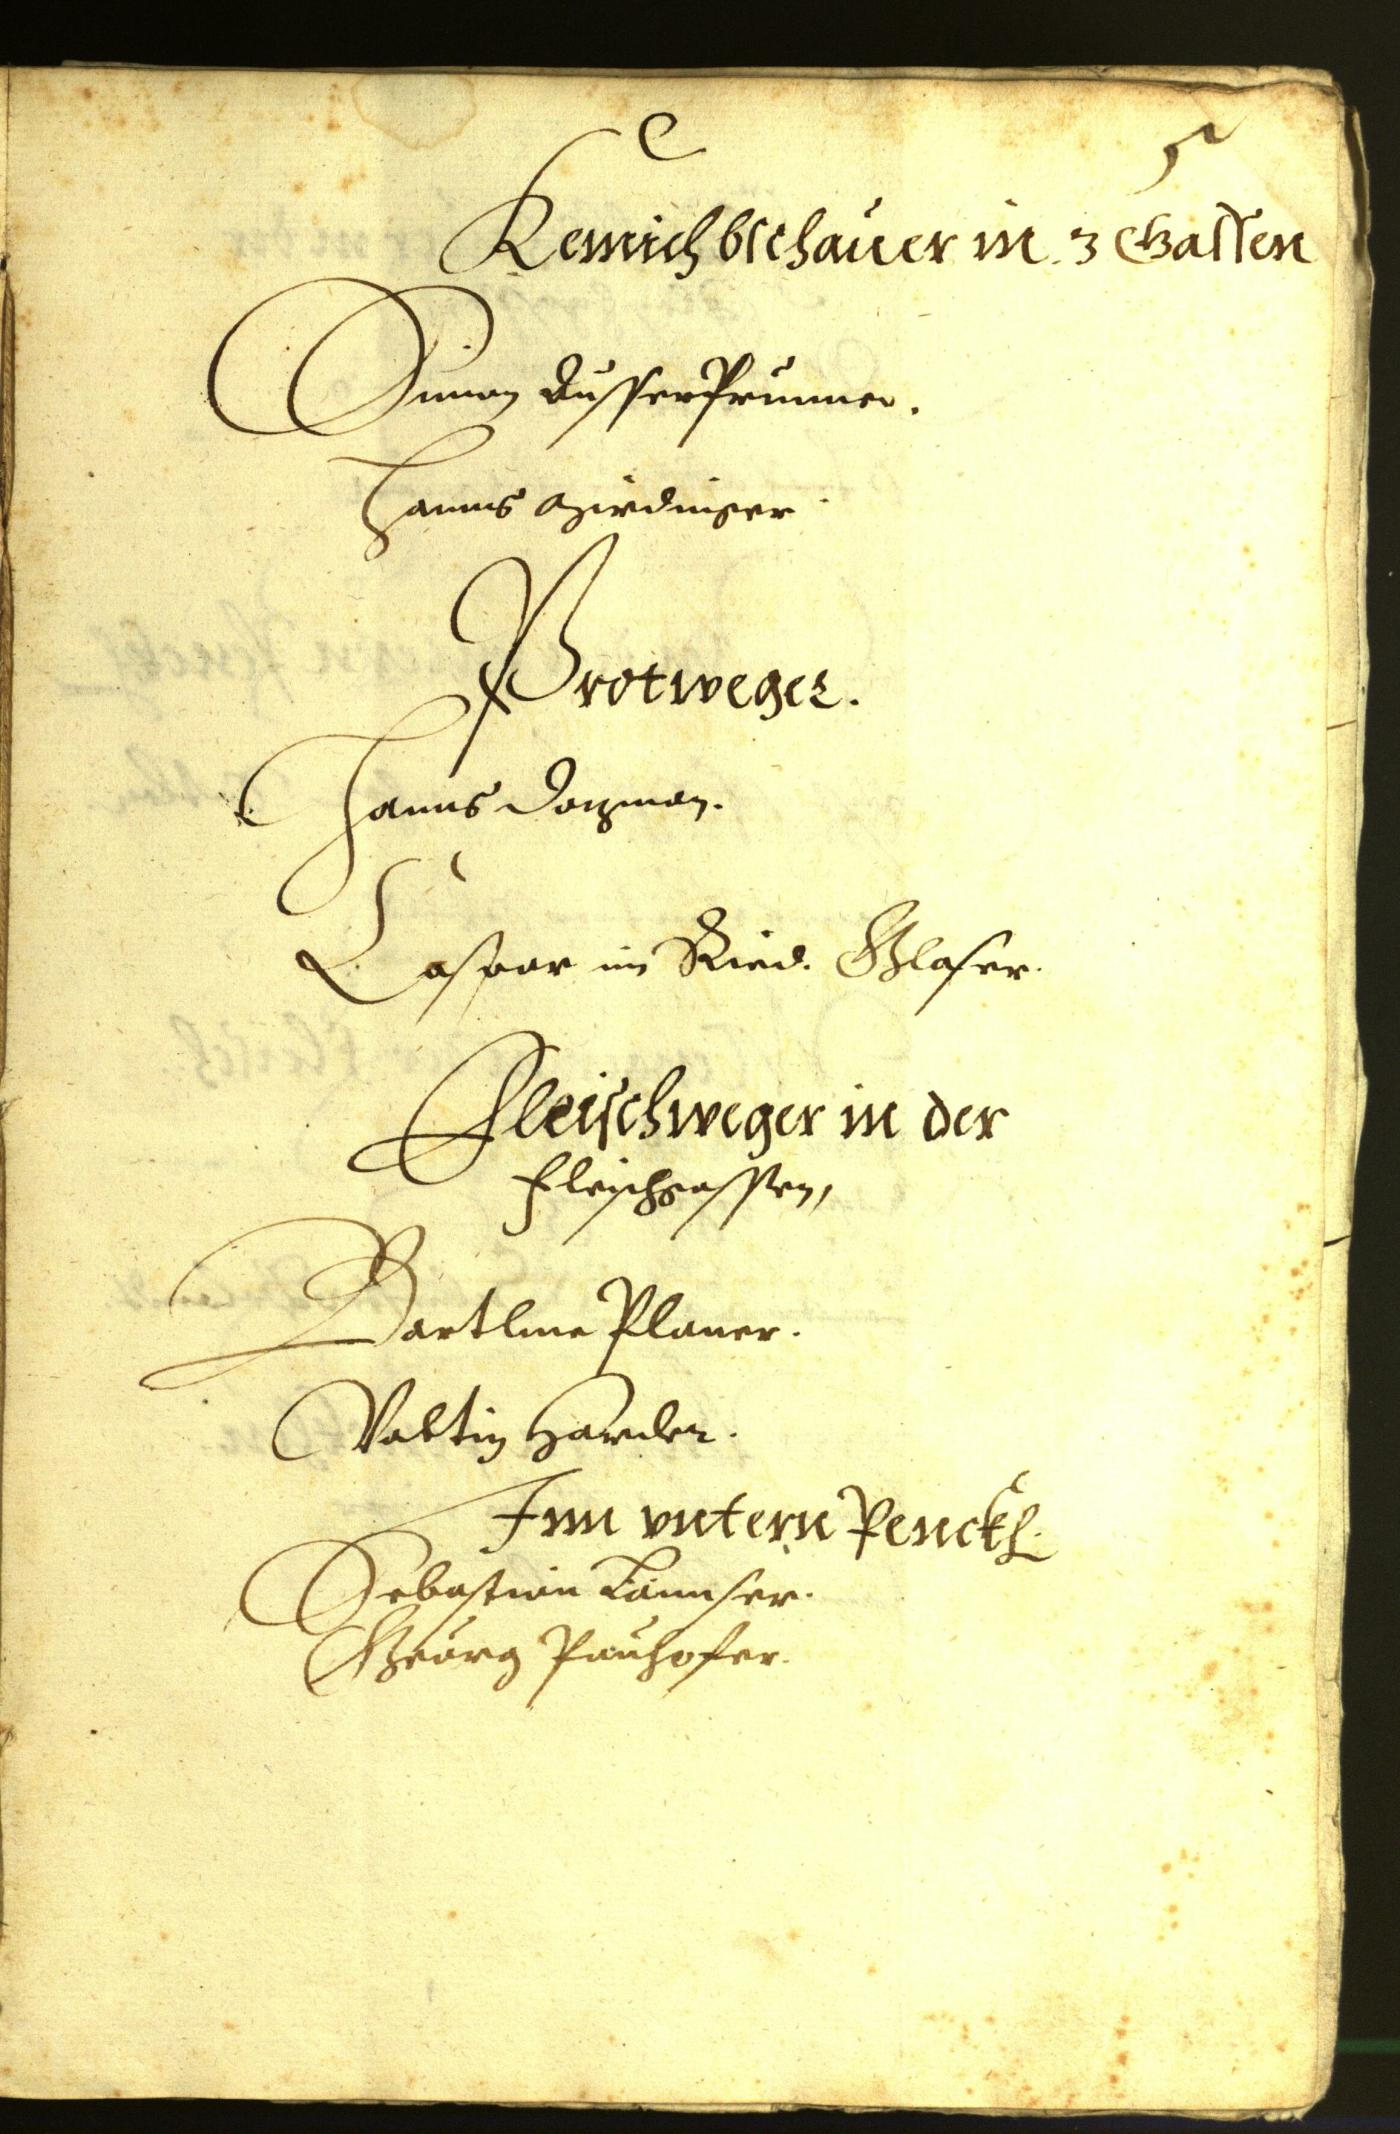 5
Kemichbschauer in 3 Gassen
Simon Aufferprunner.
Hanns
Protweger.
Hanns
Caspar im Ried. Glaser.
Fleischweger in der
Fleischgassen,
Bartlme Planer.
Valtin Harder.
Inn vntern Penckh.
Sebastian
Georg Pauhofer.